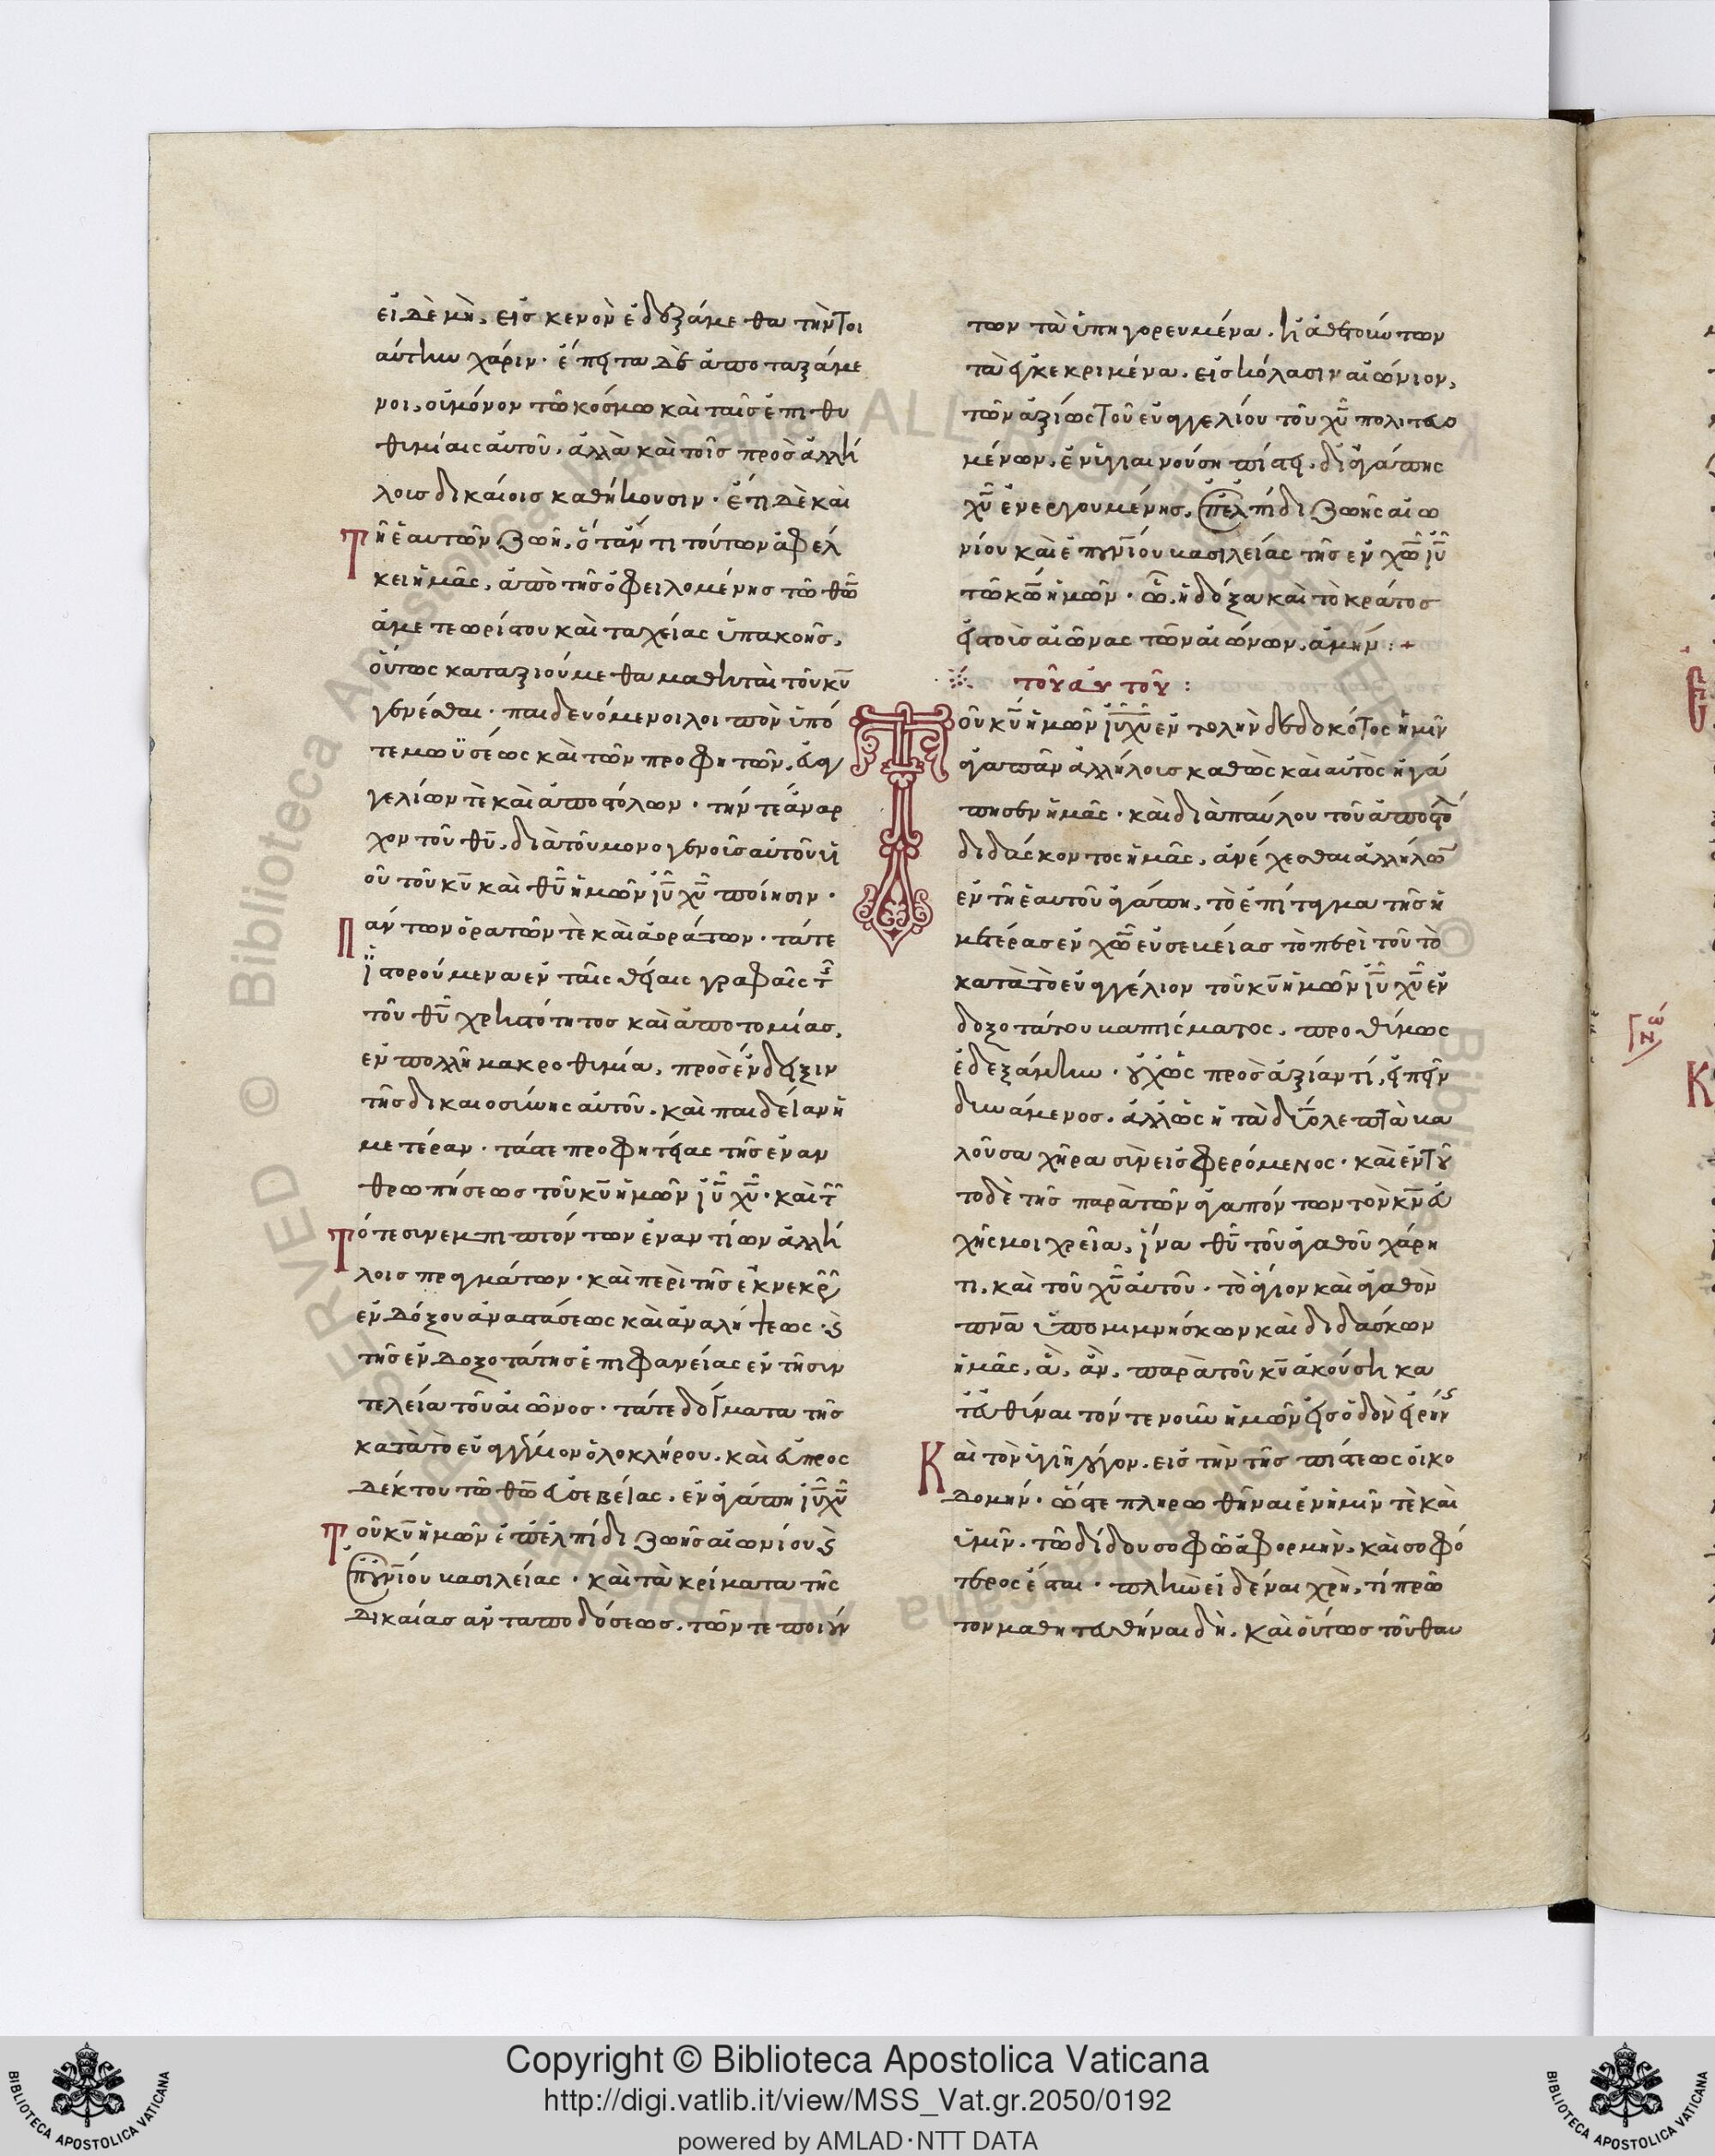 εἰ δὲ μὴ, εἰς κενὸν ἐδεξάμεθα τὴν τοι
αύτην χάριν· ἔπειτα δὲ ἀποταξάμε
νοι, οὐ μόνον τῶ κόσμω καὶ ταῖς ἐπιθυ
θυμίαις αὐτοῦ, ἀλλὰ καὶ τοῖς πρὸς ἀλλή
λοις δικαίοις καθήκουσιν· ἔτι δὲ καὶ
Τῆ ἑαυτῶν ζωῆ, ὅτάν τι τούτων ἀφέλ
κει ἡμᾶς, ἀπὸ τῆς ὀφειλομένης τῶ θῶ
ἀμετεωρίστου καὶ ταχείας ὑπακοῆς,
οὕτως καταξιούμεθα μαθηταὶ τοῦ κυ
γενέσθαι· παιδευόμενοι λοιπὸν ὑπό
τε μωϋσέως καὶ τῶν προφητῶν, εὐαγ
γελίων τὲ καὶ ἀποστόλων· τήν τε ἄναρ
χον τοῦ θυ, διὰ τοῦ μονογενοῦς αὐτοῦ υἱ
οῦ τοῦ κυ καὶ θυ ἡμῶν ιυ χυ ποίησιν·
Πάντων ὁρατῶν τὲ καὶ ἀοράτων· τά τε
ἱστορούμενα ἐν ταῖς θείαις γραφαῖς τ
τοῦ θυ χρηστότητος καὶ ἀποτομίας,
ἐν πολλῆ μακροθυμία, πρὸς ἔνδειξιν
τῆς δικαιοσύνης αὐτοῦ, καὶ παιδείαν ἡ
μετέραν· τάς τε προφητείας τῆς ἐναν
θρωπήσεως τοῦ κυ ἡμῶν ιυ χυ· καὶ τ
Τότε συνεμπιπτόντων ἐναντίων ἀλλή
λοις πραγμάτων· καὶ περὶ τῆς ἐκ νεκρ
ἐνδόξου ἀναστάσεως καὶ ἀναλήψεως· ϛ
τῆς ἐνδοξοτάτης ἐπιφανείας ἐν τῆ συν
τελεία τοῦ αἰῶνος· τά τε δόγματα τῆς
κατὰ τὸ εὐαγγέλιον ὁλοκλήρου, καὶ εὐπρος
δέκτου τῶ θῶ εὐσεβείας, ἐν ἀγάπη ιυ χυ
Τοῦ κυ ἡμῶν ἐπ ἐλπίδι ζωῆς αἰωνίου ϛ
ἐπουνίου βασιλείας· καὶ τὰ κρίματα τῆς
δικαίας ἀνταποδόσεως, τῶν τε ποιούν
των τὰ ὑπηγορευμένα, ἢ ἀθετούντων
τὰ ἐγκεκριμένα, εἰς κόλασιν αἰώνιον,
τῶν ἀξίως τοῦ εὐαγγελίου τοῦ χυ πολιτευο
μένων, ἐν ὑγιαινούση πίστει, δι ἀγάπης
χυ ἐνεργουμένης, ἐπ ἐλπίδι ζωῆς αἰω
νίου καὶ ἐπουνίου βασιλείας τῆς ἐν χῶ ιυ
τῶ κῶ ἡμῶν· ὧ, ἡ δόξα καὶ τὸ κράτος
εἰς τοὺς αἰῶνας τῶν αἰώνων, ἀμήν: +
τοῦ αὐτοῦ:
Τοῦ κυ ἡμῶν ιυ χυ ἐντολὴν δεδοκότος ἡμῖν
ἀγαπᾶν ἀλλήλοις καθὼς καὶ αὐτὸς ἠγά
πησεν ἡμᾶς· καὶ διὰ παύλου τοῦ ἀποστό
διδάσκοντος ἡμᾶς, ἀνέχεσθαι ἀλλήλων
ἐν τῆ ἑαυτοῦ ἀγάπη, τὸ ἐπίταγμα τῆς ἡ
μετέρας ἐν χῶ εὐσεβείας τὸ περὶ τοῦ τὸ
κατὰ τὸ εὐαγγέλιον τοῦ κυ ἡμῶν ιυ χυ ἐν
δοξοτάτου βαπτίσματος, προθύμως
ἐδεξάμην· οὐχ ὡς πρὸς ἀξίαν τί, εἰπεῖν
δυνάμενος, ἀλλ ὡς ἡ τὰ δύο λεπτὰ βα
λοῦσα χήρα συνεισφερόμενος· καὶ ἐν τού
το δὲ τῆς παρὰ τῶν ἀγαπόντων τὸν κν εὐ
χῆς μοι χρεία, ἵνα θυ τοῦ ἀγαθοῦ χάρη
τι, καὶ τοῦ χυ αὐτοῦ· τὸ ἅγιον καὶ ἀγαθὸν
πνα ὑπομιμνήσκων καὶ διδάσκων
ἡμᾶς, ἃ, ἂν, παρὰ τοῦ κυ ἀκούση κα
τευθύναι τόν τε νοῦν ἡμῶν εἰς ὁδὸν εἰρήν
Καὶ τὸν ὑγιῆ λόγον, εἰς τὴν τῆς πίστεως οἰκο
δομήν· ὥστε πληρωθῆναι ἐν ἡμῖν τὲ καὶ
ὑμῖν, τῶ δίδου σοφῶ ἀφορμὴν, καὶ σοφό
τερος ἔσται· πλὴν εἰδέναι χρὴ, τί πρῶ
τον μαθητευθῆναι δὴ, καὶ οὕτως τοῦ θαυ
Copyright © Biblioteca Apostolica Vaticana
http://digi.vatlib.it/view/MSS_Vat.gr.2050/0192
powered by AMLAD·NTT DATA